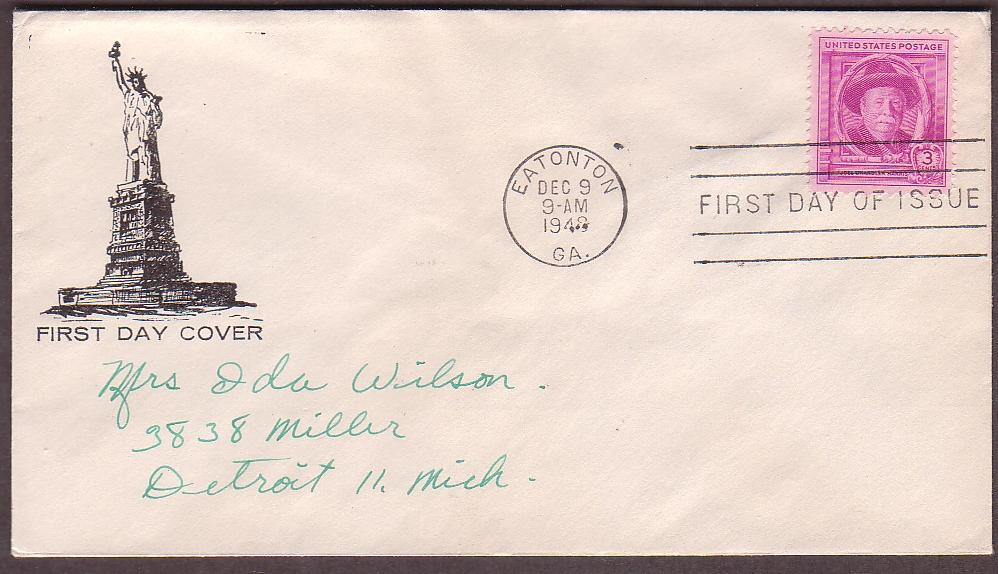 UNITED STATES POSTAGE
3
CENTS
JOEL CHANDLER HARRIS
EATONTON
DEC 9
9-AM
1948
GA.
FIRST DAY OF ISSUE
FIRST DAY COVER
Mrs Ida Wilson.
3838 Miller
Detroit 11. Mich.